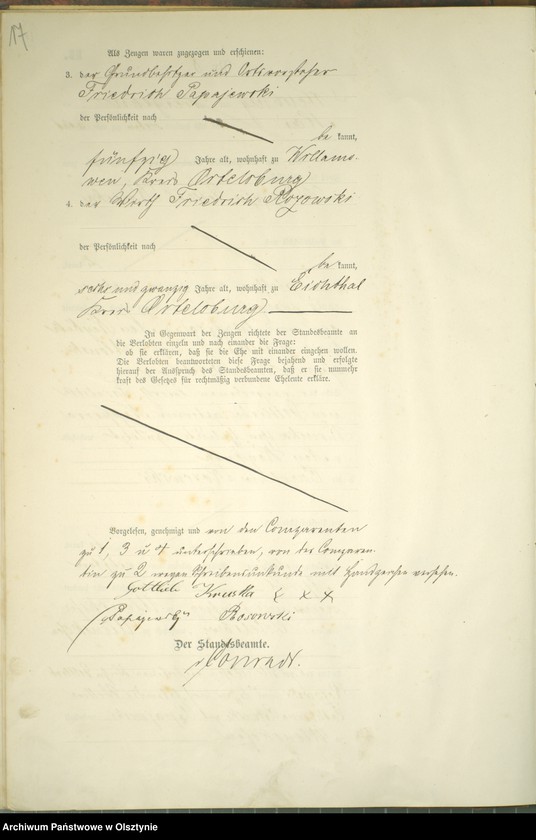 17
Als Zeugen waren zugezogen und erschienen:
3. der Grundbesitzer und Ortsvorsteher
Friedrich Papajewski
der Persönlichkeit nach
be kannt,
fünfzig Jahre alt, wohnhaft zu Willams-
wen, Kreis Ortelsburg
4. der Wirth Friedrich Rozowski
der Persönlichkeit nach
be kannt,
sechs und zwanzig Jahre alt, wohnhaft zu Eichthal
Kreis Ortelsburg
In Gegenwart der Zeugen richtete der Standesbeamte an
die Verlobten einzeln und nach einander die Frage:
ob sie erklären, daß sie die Ehe mit einander eingehen wollen.
Die Verlobten beantworteten diese Frage bejahend und erfolgte
hierauf der Ausspruch des Standesbeamten, daß er sie nunmehr
kraft des Gesetzes für rechtmäßig verbundene Eheleute erkläre.
Vorgelesen, genehmigt und von den Comparenten
zu 1, 3 u 4 unterschrieben, von der Comparen-
tin zu 2 wegen Schreibensunkunde mit Handzeichen versehen.
Gottlieb Kruska x x x
Papajewsky Rosowski
Der Standesbeamte.
Conradt.
Archiwum Państwowe w Olsztynie